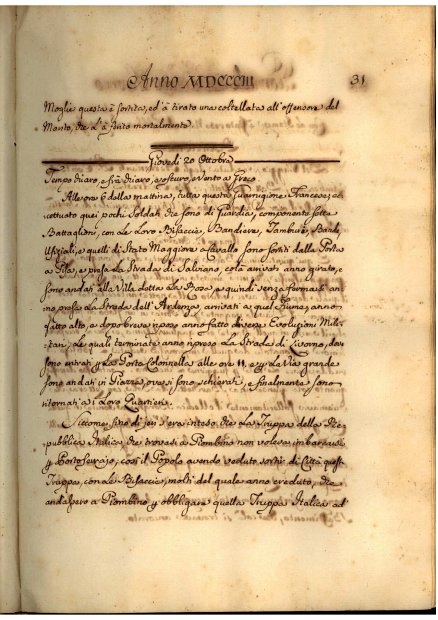 Anno MDCCCIII 31
Moglie questa è sortita, ed' à tirato una coltellata all'offensore del
Marito, che l'à ferito mortalmente
Giovedì 20 Ottobre
Tempo chiaro, e frà chiaro, e scuro, e Vento a Greco
Alle ore 6 della mattina, tutta questa Guarnigione Francese, ec
cettuato quei pochi Soldati che sono di Guardia, componente sette
Battaglioni, con Le Loro Bisaccie, Bandiere, Tamburi, Bande,
Ufiziali, e quelli di Stato Maggiore a Cavallo sono sortiti dalla Porta
a Pisa, e presa La Strada di Salviano, colà arrivati anno girato, e
sono andati alla Villa detta La Rosa, e quindi senza fermarsi an
no presa La Strada dell'Ardenza, arrivati a quel Fiume, anno
fatto alto, e dopo breve riposo anno fatto diverse Evoluzioni Mili
tari, Le quali terminate anno ripreso La Strada di Livorno, dove
sono entrati p La Porta Colonnella alle ore 11, e p La Via grande
sono andati in Piazza, ove si sono schierati, e finalmente sono
ritornati a i Loro Quartieri.
Siccome, fino di jeri s'era inteso, che La Truppa della Re
pubblica Italica che trovasi a Piombino non voleva imbarcarsi
p Portoferrajo, così il Popolo avendo veduto sortir di Città questa
Truppa, con Le Bisaccie, molti del quale anno creduto, che
andassero a Piombino p obbligare quella Truppa Italica ad